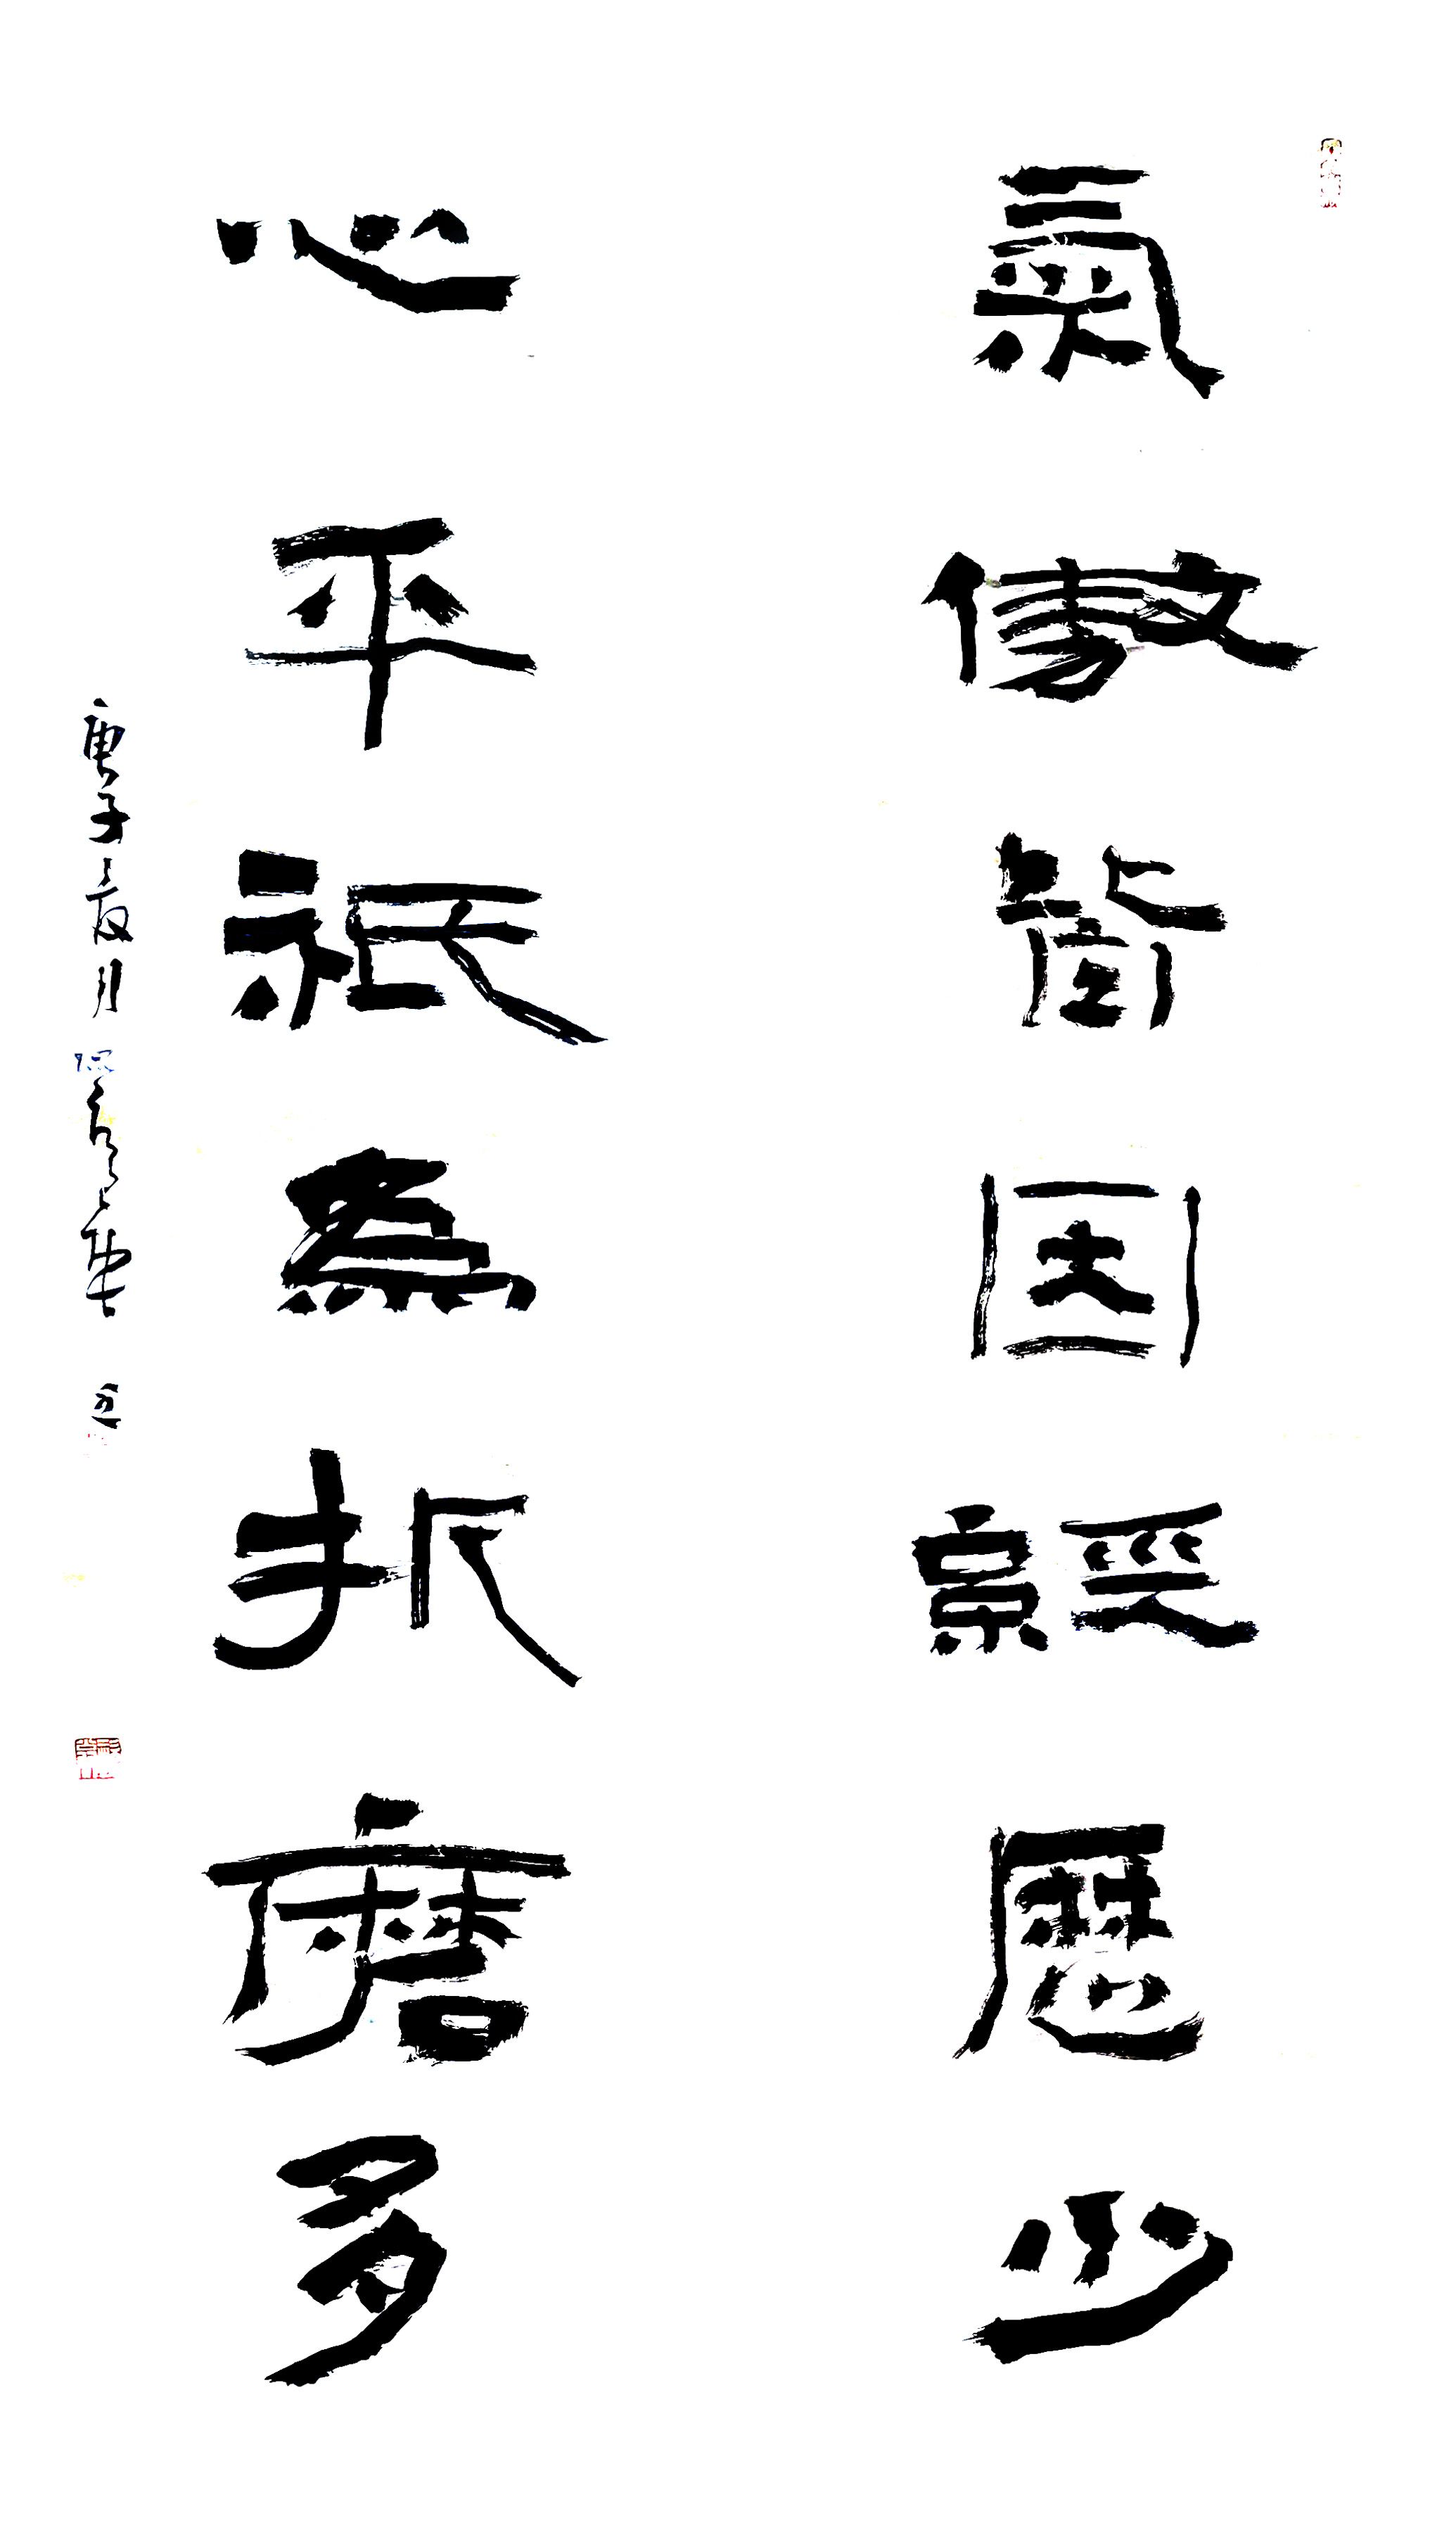 氣傲皆因經歷少
心平祇為折磨多
庚子夏月